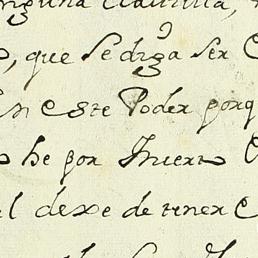 ninguna Clausula,
, que se diga ser
En este Poder porq
he por Inserto
el dexe de tener